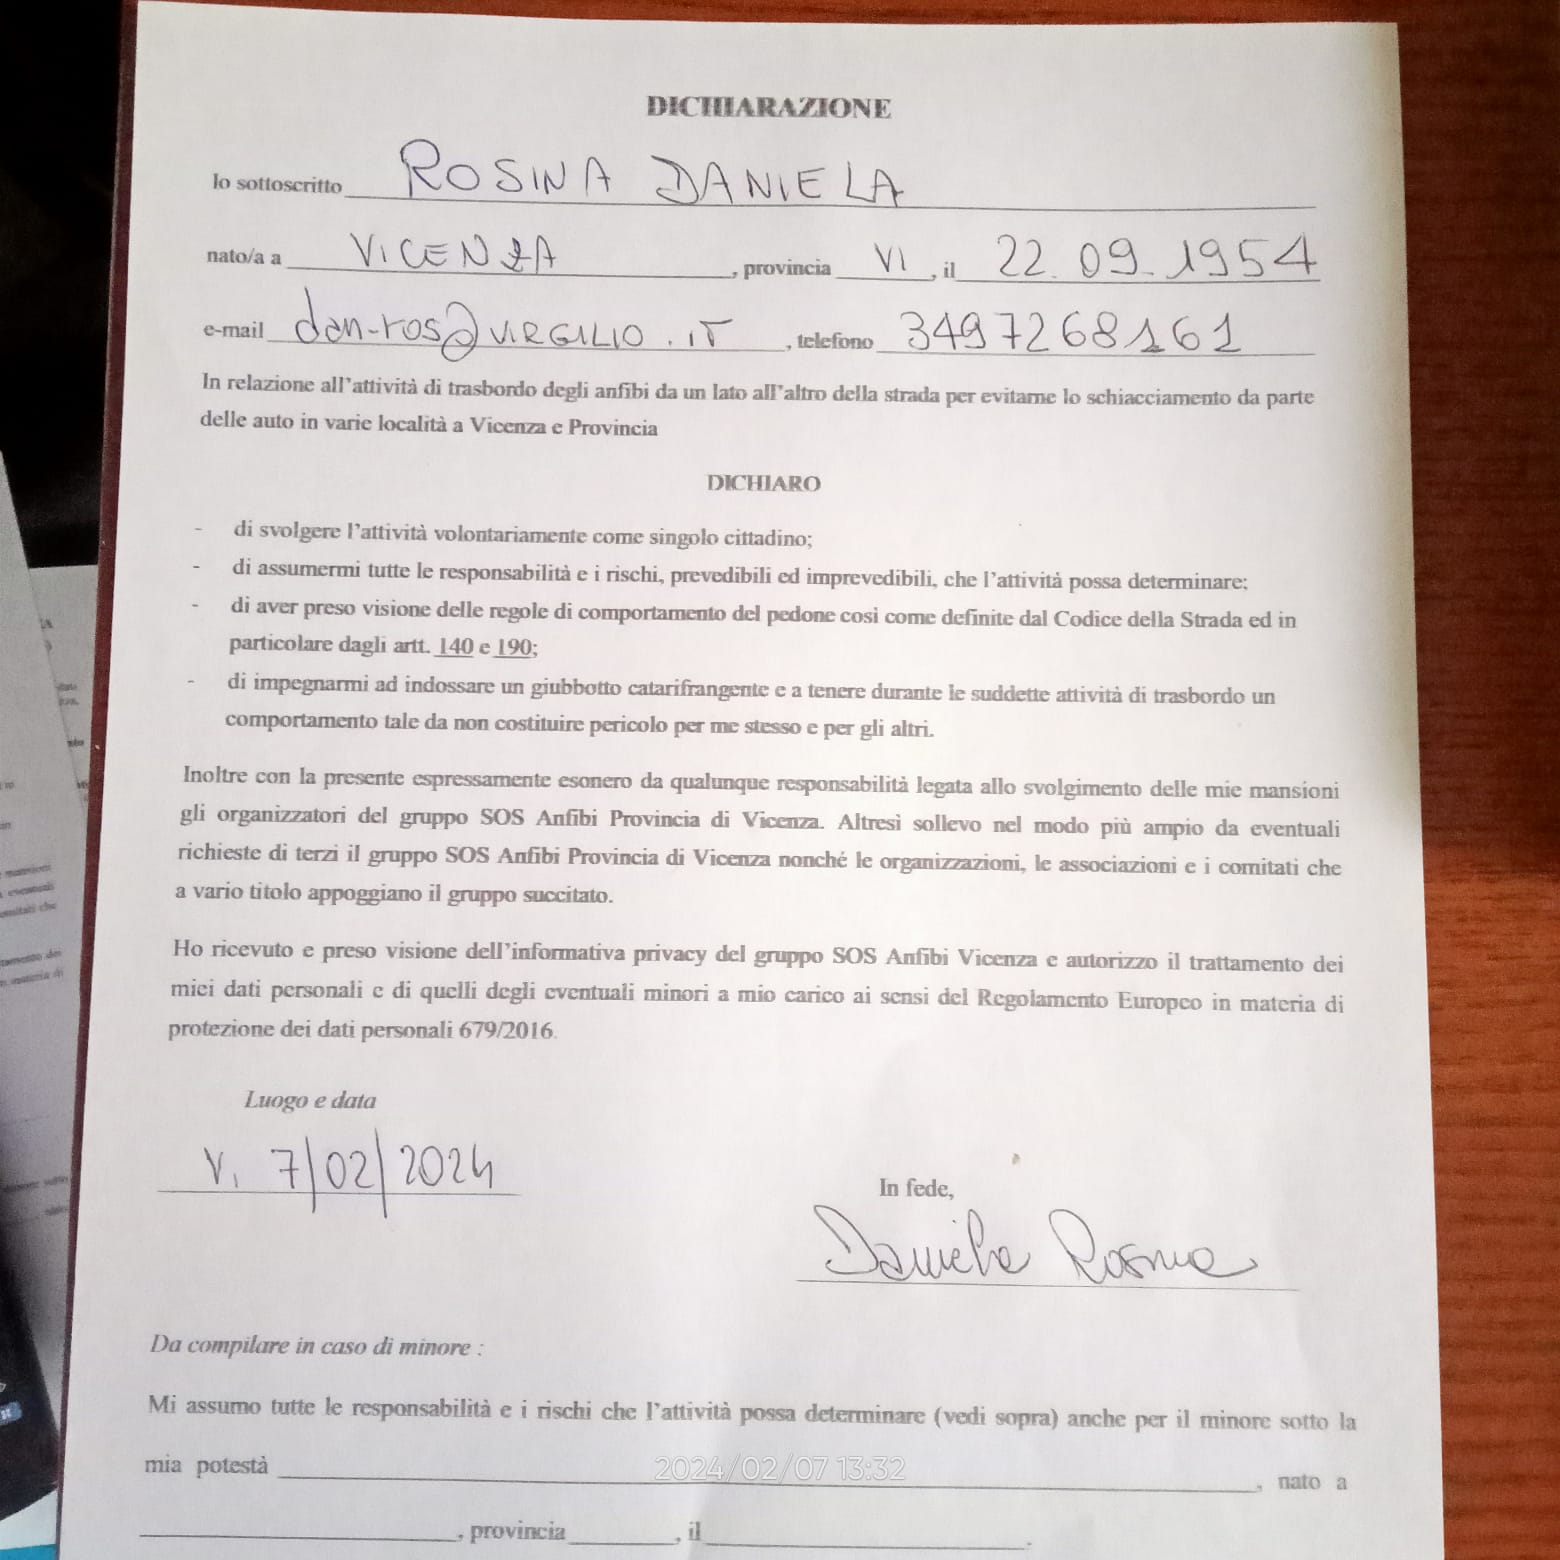 DICHIARAZIONE
Io sottoscritto ROSINA DANIELA
nato/a a VICENZA, provincia VI, il 22.09.1954
e-mail dan-ros@VIRGILIO.IT, telefono 3497268161
In relazione all'attività di trasbordo degli anfibi da un lato all'altro della strada per evitarne lo schiacciamento da parte
delle auto in varie località a Vicenza e Provincia
DICHIARO
- di svolgere l'attività volontariamente come singolo cittadino;
- di assumermi tutte le responsabilità e i rischi, prevedibili ed imprevedibili, che l'attività possa determinare;
- di aver preso visione delle regole di comportamento del pedone così come definite dal Codice della Strada ed in
particolare dagli artt. 140 e 190;
- di impegnarmi ad indossare un giubbotto catarifrangente e a tenere durante le suddette attività di trasbordo un
comportamento tale da non costituire pericolo per me stesso e per gli altri.
Inoltre con la presente espressamente esonero da qualunque responsabilità legata allo svolgimento delle mie mansioni
gli organizzatori del gruppo SOS Anfibi Provincia di Vicenza. Altresì sollevo nel modo più ampio da eventuali
richieste di terzi il gruppo SOS Anfibi Provincia di Vicenza nonché le organizzazioni, le associazioni e i comitati che
a vario titolo appoggiano il gruppo succitato.
Ho ricevuto e preso visione dell'informativa privacy del gruppo SOS Anfibi Vicenza e autorizzo il trattamento dei
miei dati personali e di quelli degli eventuali minori a mio carico ai sensi del Regolamento Europeo in materia di
protezione dei dati personali 679/2016.
Luogo e data
V. 7/02/2024
In fede,
Daniela Rosina
Da compilare in caso di minore :
Mi assumo tutte le responsabilità e i rischi che l'attività possa determinare (vedi sopra) anche per il minore sotto la
mia potestà , nato a
2024/02/07 13:32
, provincia , il .